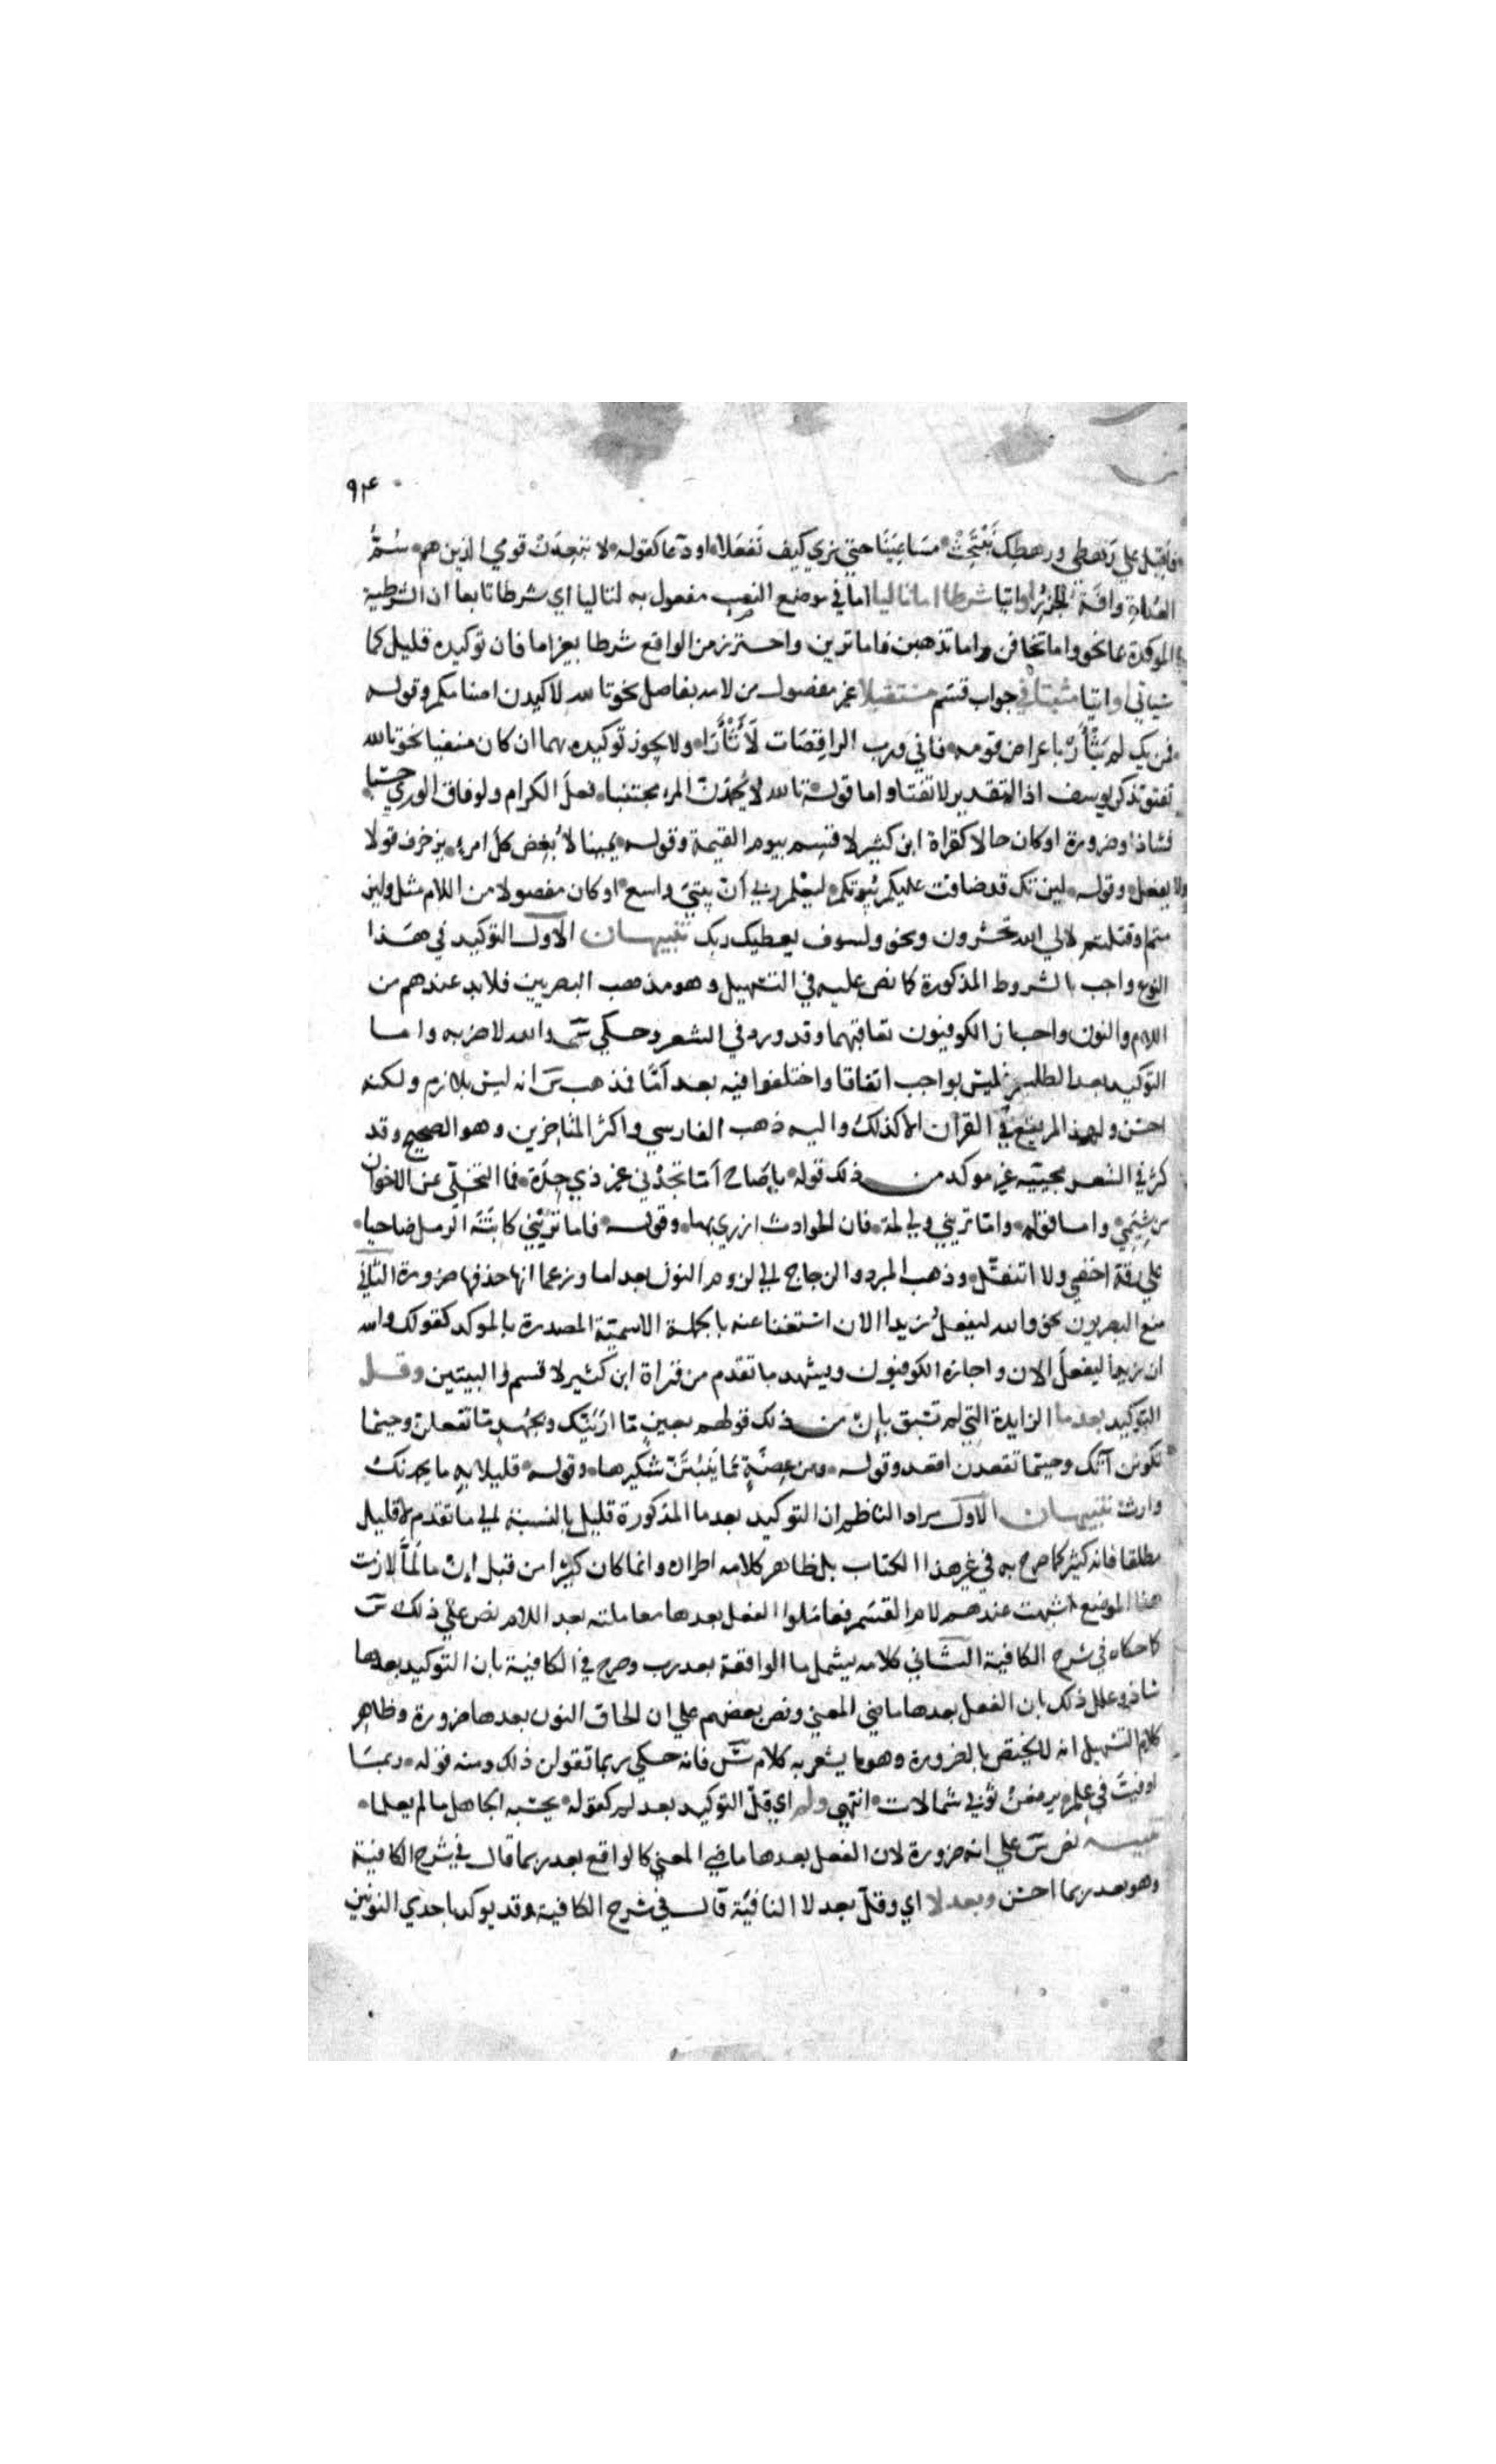 ٩٤
فاقبل علي رهطي ورهطك نَبْتَحِثْ مسَاعِيَنَا حتي نري كيف نَفعَلا او دعا كقوله لا يبعِدَنْ قومي الذين هم سُمُّ
العُداةِ وافَة الجُزُر او اتيا شرطا اما تاليا اما في موضع النصب مفعول به لتاليا اي شرطا تابعا ان الشرطية
الموكدة بما نحو واما تخافن واما تذهبن فاما ترين واحترز من الواقع شرطا بغير اما فان توكيده قليل كما
سياتي او اتيا مثبتا في جواب قسَم مستقبلا غير مفصول من لامه بفاصل نحو تالله لاكيدن اصنامكم وقوله
فمن يك لم يَثْأَرْ باعراض قومه فاني ورب الراقِصَات لَأَثْأَرَا ولا يجوز توكيده بهما ان كان منفيا نحو تالله
تفتؤ تذكر يوسف اذ التقدير لا تفتا واما قوله تالله لا يُحمَدَنّ المرء مجتنبا فعلَ الكرام ولو فاق الوري حسَبا
فشاذ او ضرورة او كان حالا كقراة ابن كثير لاقسِم بيوم القيمة وقوله يمينا لَأُبغِض كلّ امرءٍ يزخرف قولا
ولا يفعل وقوله لين تك قد ضاقت عليكم بُيُوتكم ليعْلم ربي أنّ بيتيَ واسع او كان مفصولا من اللام مثل ولين
متم او قتلتم لالي الله تحشرون ونحو ولسوف يعطيك ربك تنبيهان الاول التوكيد في هذا
النوع واجب بالشروط المذكورة كما نص عليه في التسهيل وهو مذهب البصريين فلابد عندهم من
اللام والنون واجاز الكوفيون تعاقبهما وقد ورد في الشعر وحكي سَ والله لاضربه واما
التوكيد بعد الطلب فليس بواجب اتفاقا واختلفوا فيه بعد اَمّا فذهب سَ انه ليس بلازم ولكنه
احسن ولهذا لم يقع في القران الا كذلك واليه ذهب الفارسي واكثر المتاخرين وهو الصحيح وقد
كثر في الشعر مجيئه غير موكد من ذلك قوله يا صَاح اَمّا تجدْني غير ذي جِدَة فما التخَلّي عن الاخوان
من شِيَمي واما قوله وامّا تريني ولي لمة فان الحوادث ازري بها وقوله فاما تَرَيْنِي كابْنَة الرمل ضاحيا
علي رقة احفي ولا اتنعّل وذهب المبرد والزجاج الي لزوم النون بعد اما وزعما انها حذفها ضرورة الثاني
منع البصريون نحو والله ليفعلُ زيد الان استغنا عنه بالجملة الاسميّة المصدرة بالموكد كقولك والله
ان زيدا ليفعلُ الان واجازه الكوفيون ويشهد ما تقدم من قراة ابن كثير لاقسم والبيتين وقل
التوكيد بعد ما الزايدة التي لم تسْبق بإنْ من ذلك قولهم بعينٍ مّا ارَيَنّك وبجُهْدٍ مّا تفعلن وحيثما
تكونن آتك وحيثما تقعدن اقعد وقوله ومن عِضَةٍ مّا يَنْبُتَنّ شكيرها وقوله قليلا به ما يحمدنك
وارث تنبيهان الاول مراد الناظم ان التوكيد بعد ما المذكورة قليل بالنسبة الي ما تقدم لا قليل
مطلقا فانه كثير كما صرح به في غير هذا الكتاب بل ظاهر كلامه اطراده وانما كان كثيرا من قبل ان ما لَمَّا لازمت
هذا الموضع اشبهت عندهم لام القسَم فعامَلوا الفعل بعدها معاملته بعد اللام نص علي ذلك سَ
كما حكاه في شرح الكافية الثاني كلامه يشمل ما الواقعة بعد رب وصرح في الكافية بان التوكيد بعدها
شاذ وعلل ذلك بان الفعل بعدها ماضي المعني ونص بعضهم علي ان الحاق النون بعدها ضرورة وظاهر
كلام التسهيل انه لا يختص بالضرورة وهو ما يشعر به كلام سَ فانه حكي ربما تقولن ذلك ومنه قوله ربمَا
اوفيتُ في علمٍ يرفعنْ ثوبي شمالات انتهي ولم اي قلّ التوكيد بعد لم كقوله يحسَبه الجاهل ما لم يعلما
تنبيه نص سَ علي انه ضرورة لان الفعل بعدها ماضي المعني كالواقع بعد ربما قال في شرح الكافية
وهو بعد ربما احسَن وبعد لا اي وقلّ بعد لا النافية قال في شرح الكافية وقد يوكد باحدي النونين